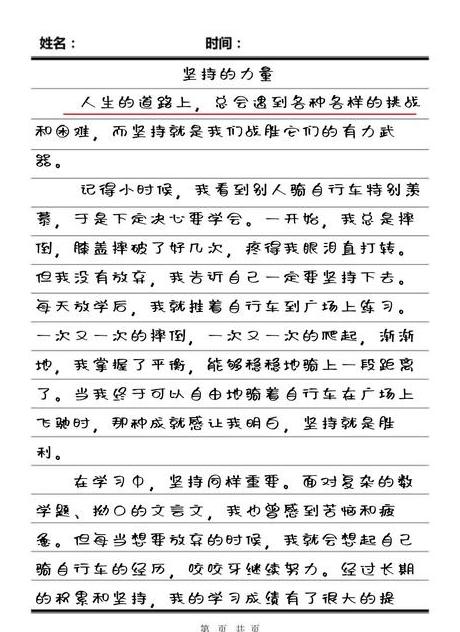 姓名： 时间：
坚持的力量
人生的道路上，总会遇到各种各样的挑战
和困难，而坚持就是我们战胜它们的有力武
器。
记得小时候，我看到别人骑自行车特别羡
慕，于是下定决心要学会。一开始，我总是摔
倒，膝盖摔破了好几次，疼得我眼泪直打转。
但我没有放弃，我告诉自己一定要坚持下去。
每天放学后，我就推着自行车到广场上练习。
一次又一次的摔倒，一次又一次的爬起，渐渐
地，我掌握了平衡，能够稳稳地骑上一段距离
了。当我终于可以自由地骑着自行车在广场上
飞驰时，那种成就感让我明白，坚持就是胜
利。
在学习中，坚持同样重要。面对复杂的数
学题、拗口的文言文，我也曾感到苦恼和疲
惫。但每当想要放弃的时候，我就会想起自己
骑自行车的经历，咬咬牙继续努力。经过长期
的积累和坚持，我的学习成绩有了很大的提
第 页 共 页